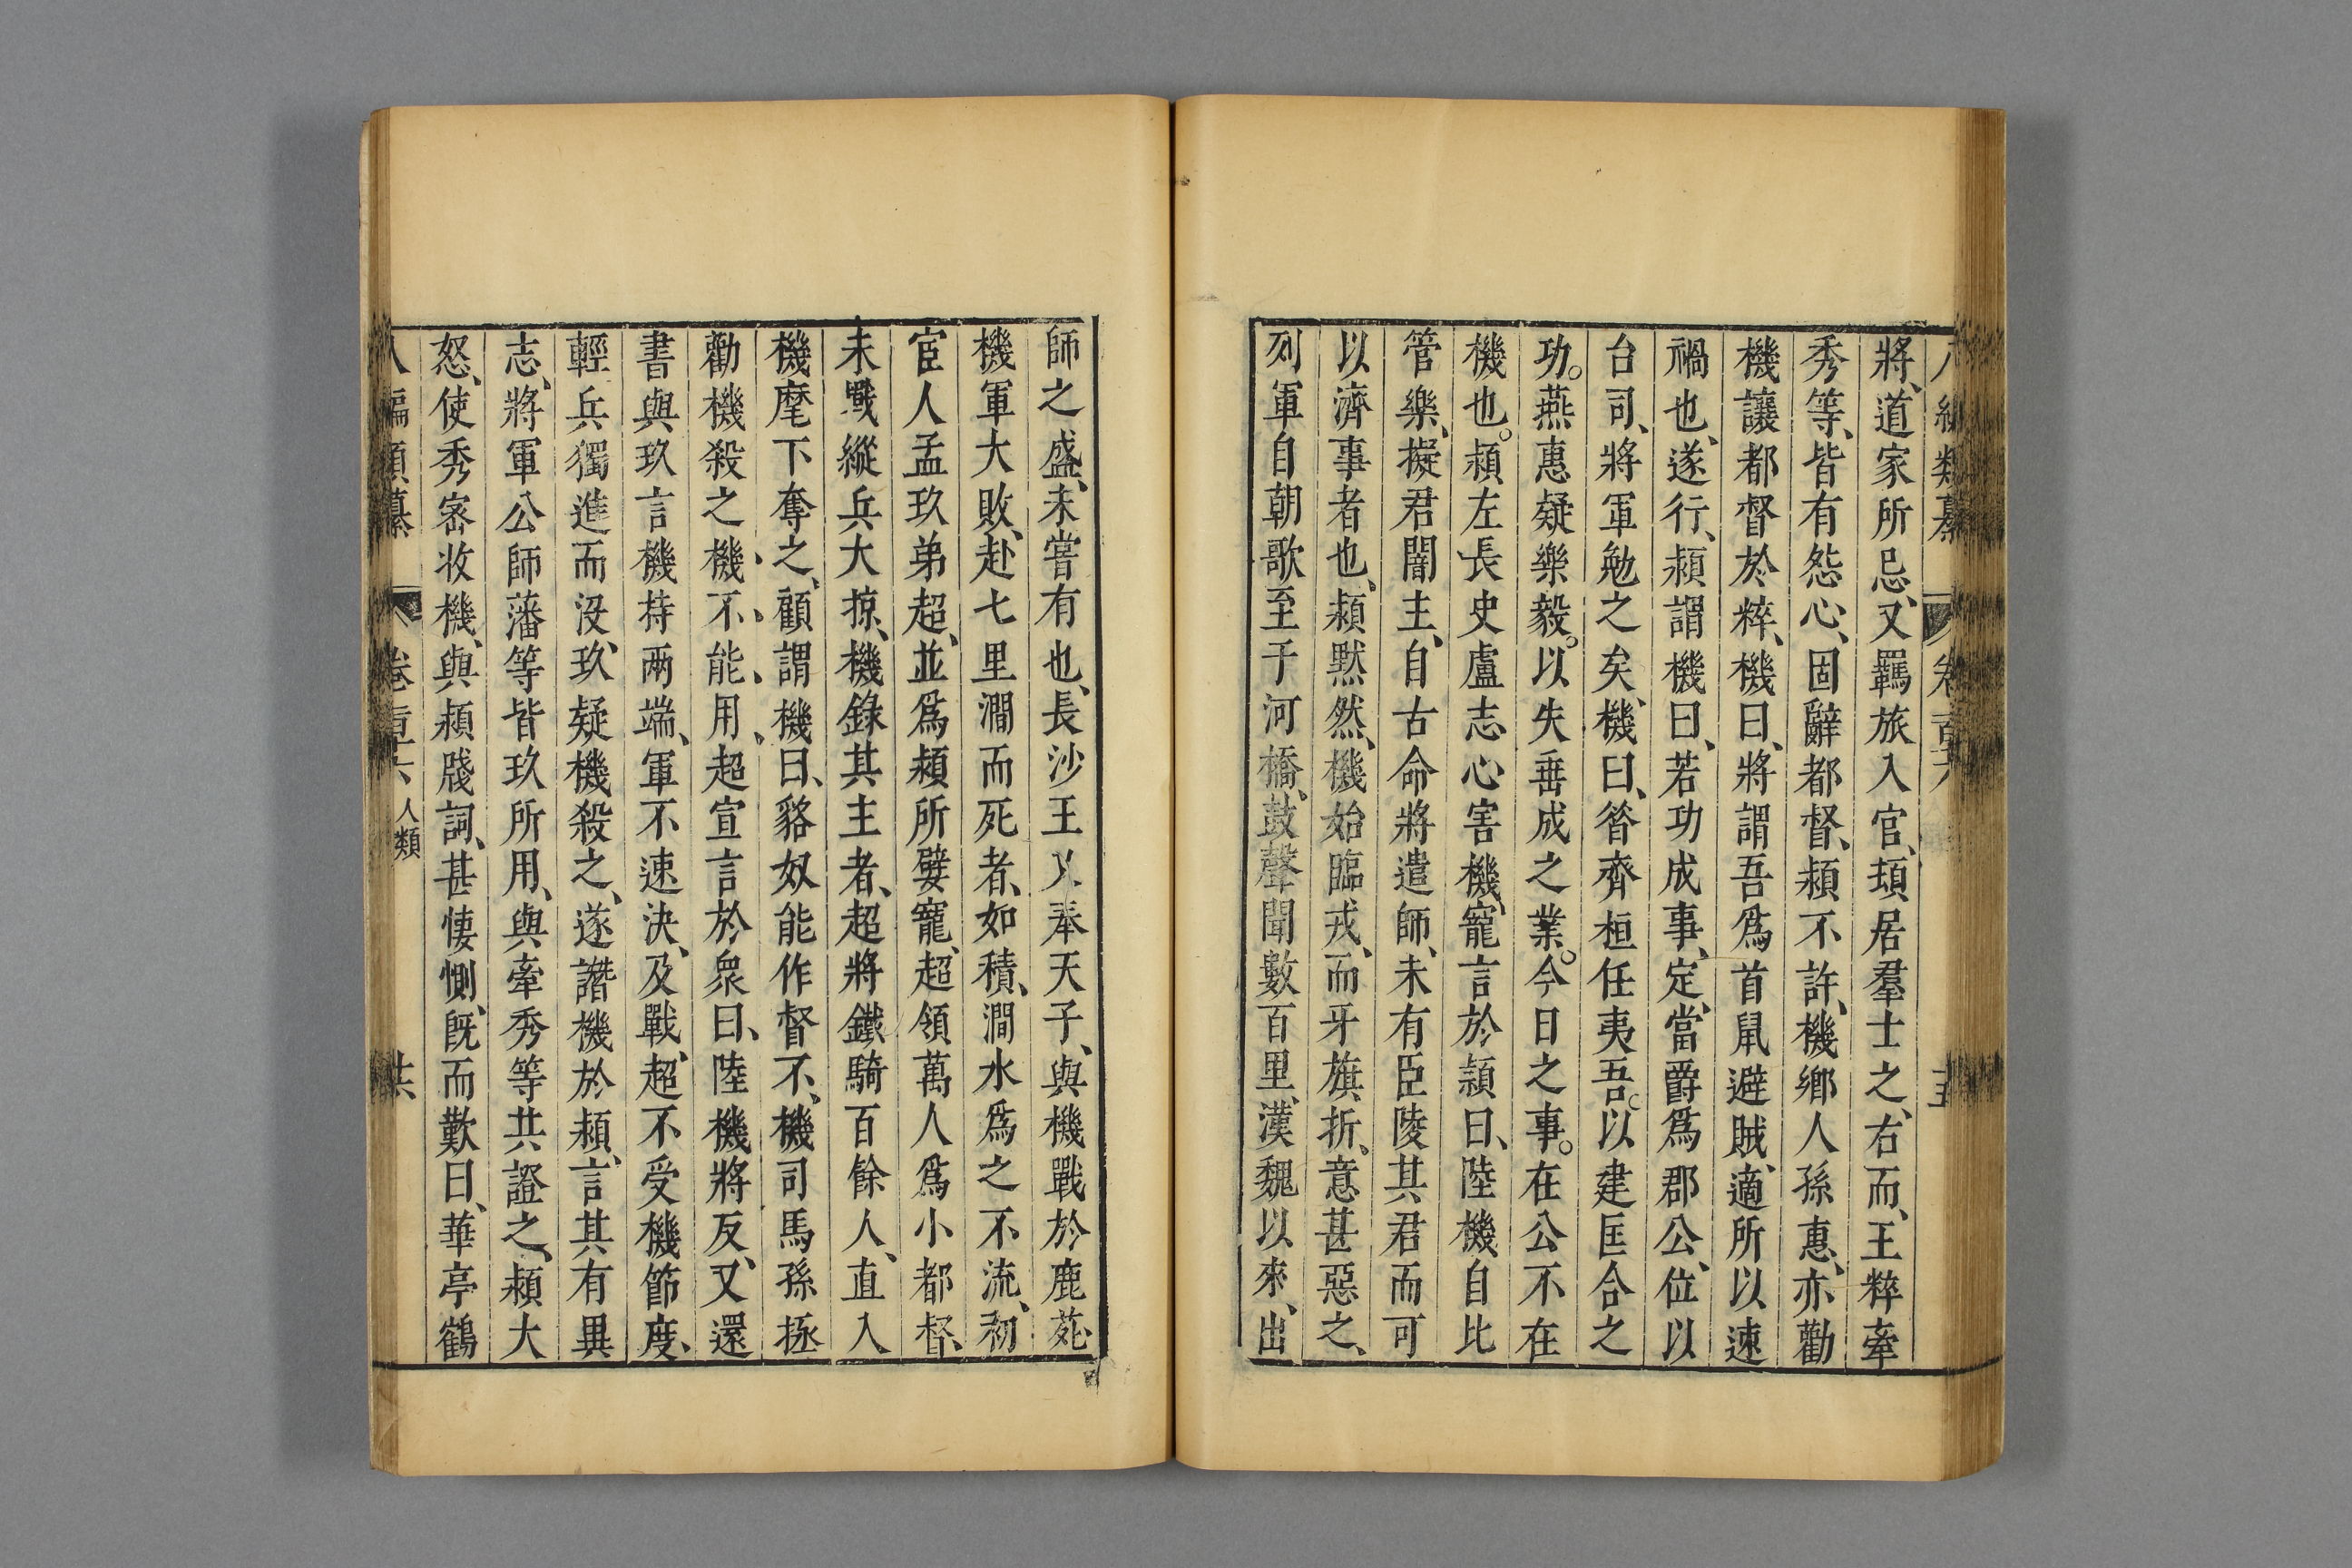 將、道家所忌、又羈旅入官、頓居羣士之、右而、王粹牽
秀等、皆有怨心、固辭都督、穎不許、機鄉人孫惠、亦勸
機讓都督於粹、機曰、將謂吾爲首鼠避賊、適所以速
禍也、遂行、穎謂機曰、若功成事、定、當爵爲郡公、位以
台司、將軍勉之矣、機曰、昝齊桓任夷吾。以建匡合之
功。燕惠疑樂毅。以失垂成之業。今日之事。在公不在
機也。穎左長史盧志心害機、寵言於穎曰、陸機自比
管樂、擬君闇主、自古命將遣師、未有臣陵其君而可
以濟事者也、穎默然、機始臨戎、而牙旗折、意甚惡之、
列軍自朝歌至于河橋、鼓聲聞數百里、漢魏以來、出
師之盛、未嘗有也、長沙王乂奉天子、與機戰於鹿苑、
機軍大敗、赴七里澗而死者、如積、澗水爲之不流、初
宦人孟玖弟超、並爲穎所嬖寵、超領萬人爲小都督、
未戰縱兵大掠、機錄其主者、超將鐵騎百餘人、直入
機麾下奪之、顧謂機曰、貉奴能作督不、機司馬孫拯
勸機殺之、機、不、能、用、超宣言於衆曰、陸機將反、又還
書與玖言機持兩端、軍不速決、及戰、超不受機節度、
輕兵獨進而沒、玖疑機殺之、遂譖機於穎、言其有異
志、將軍公師藩等皆玖所用、與牽秀等共證之、穎大
怒、使秀密收機、與穎牋詞、甚悽惻、旣而歎曰、華亭鶴
人類